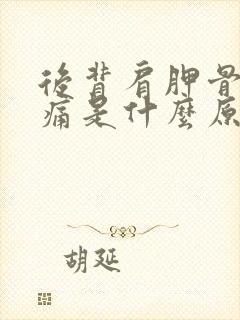 後背肩胛骨
痛是什麼原
胡延